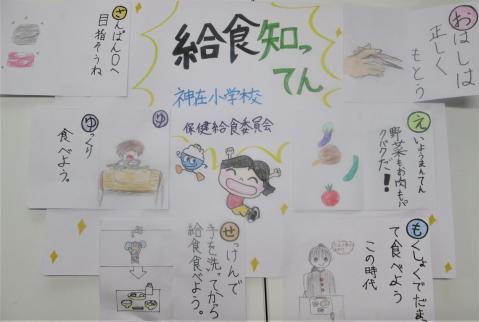 給食知っ
てん
神在小学校
保健給食委員会
お
おはしは
正しく
もとう
え
えいようまんてん
野菜もお肉もパ
クパクだ!
も
もくしょくでだま
って食べよう
この時代
ざんぱん0へ
目指そうね
ゆ
ゆっくり
食べよう。
せっけんで
手を洗ってから
給食食べよう。